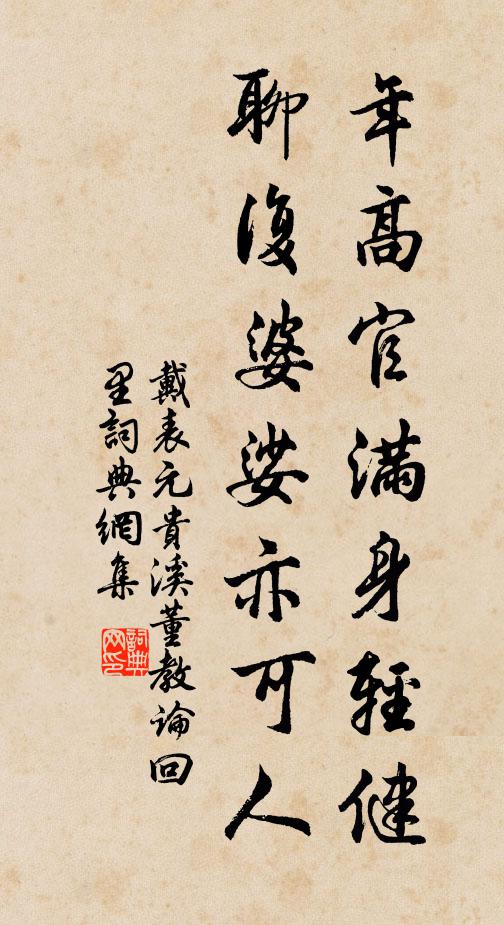 年高官满身輕健
聊復婆娑亦可人
戴表元貴溪董教論回
里詞典網集
詞典网印